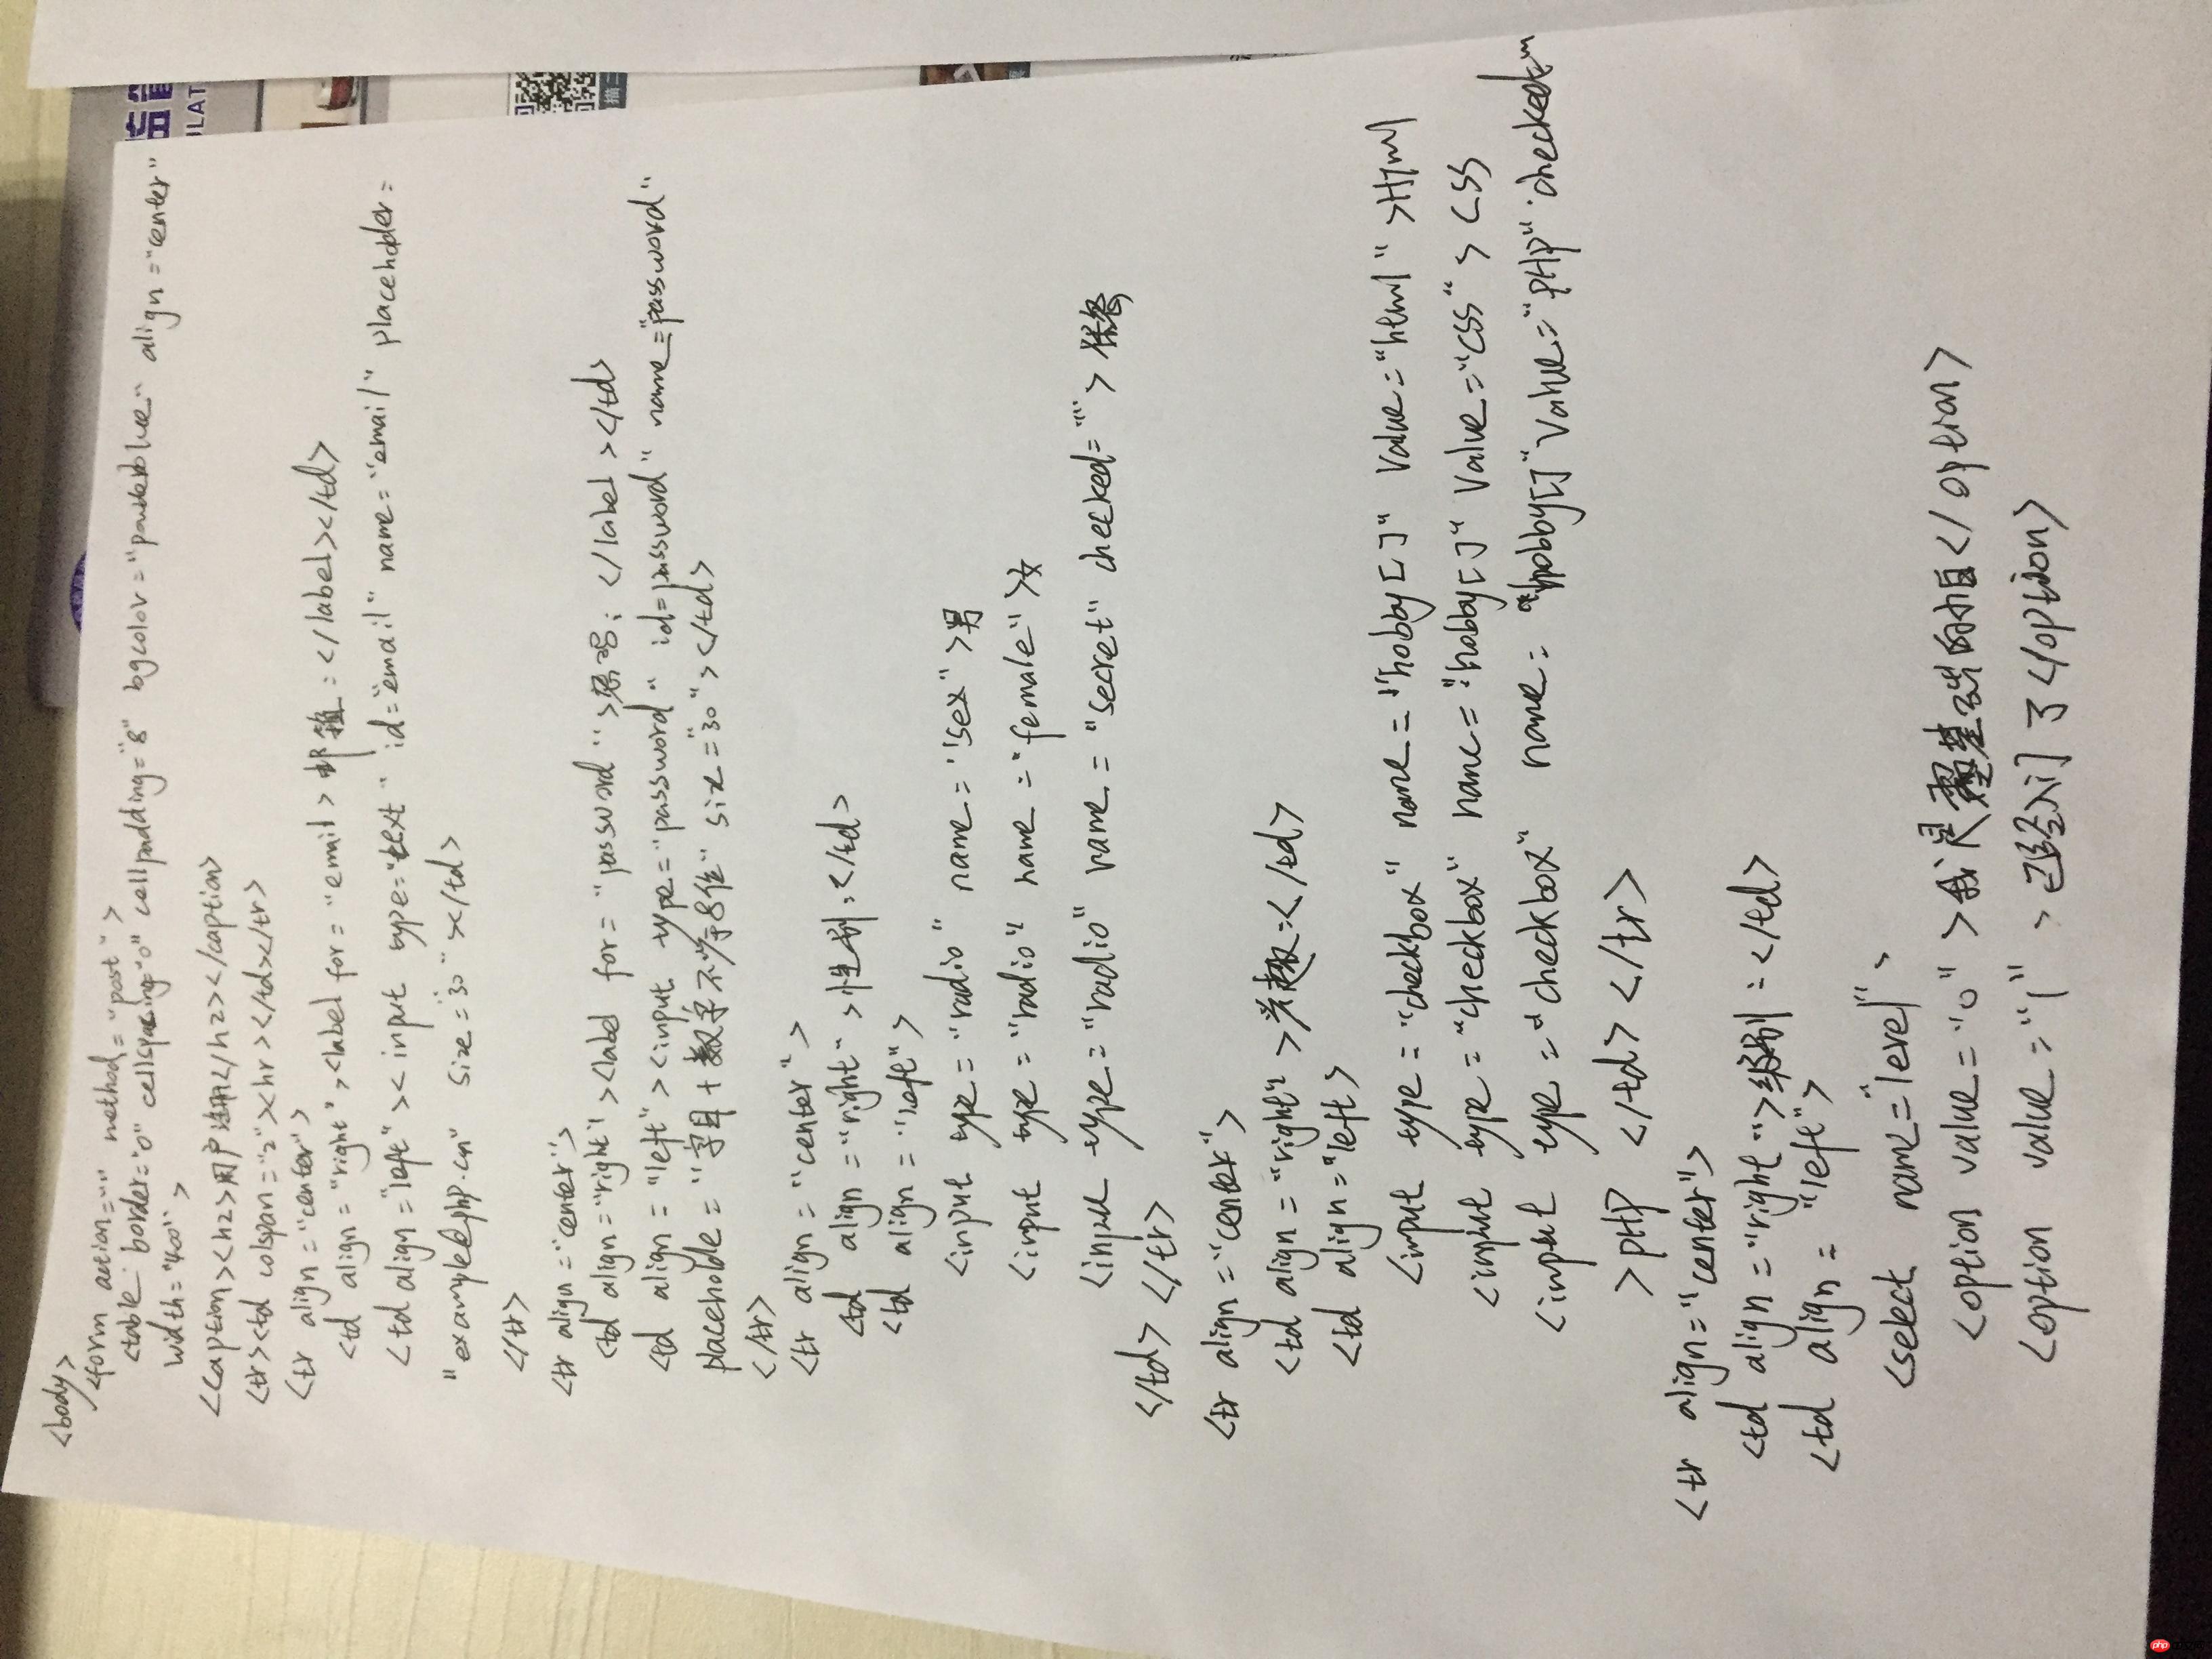 <body>
<form action="" method="post">
<table border="0" cellspacing="0" cellpadding="8" bgcolor="powderblue" align="center"
width="400">
<caption><h2>用户注册</h2></caption>
<tr><td colspan="2"><hr></td></tr>
<tr align="center">
<td align="right"><label for="email>邮箱:</label></td>
<td align="left"><input type="text" id="email" name="email" placeholder=
"example@php.cn" size="30"></td>
</tr>
<tr align="center">
<td align="right"><label for="password">密码:</label></td>
<td align="left"><input type="password" id=password" name="password"
placeholde="字母+数字不少于8位" size="30"></td>
</tr>
<tr align="center">
<td align="right">性别:</td>
<td align="left">
<input type="radio" name="sex">男
<input type="radio" name="female">女
<input type="radio" name="secret" checked="">保密
</td></tr>
<tr align="center">
<td align="right">兴趣:</td>
<td align="left>
<input type="checkbox" name="hobby[]" value="html">Html
<input type="checkbox" name="hobby[]" value="css">CSS
<input type="checkbox" name="hobby[]" value="PHP" checked
>PHP </td></tr>
<tr align="center">
<td align="right">级别:</td>
<td align="left">
<select name="level">
<option value="0">我是零基础的小白</option>
<option value="1">已经入门了</option>
php